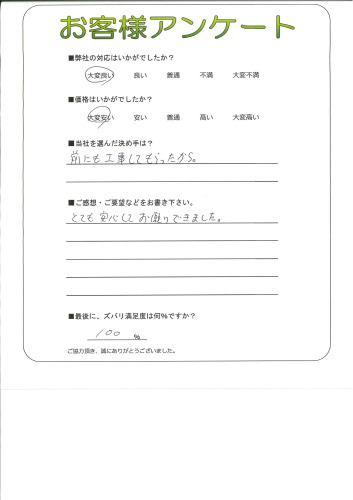 お客様アンケート
■弊社の対応はいかがでしたか?
大変良い 良い 普通 不満 大変不満
■価格はいかがでしたか?
大変安い 安い 普通 高い 大変高い
■当社を選んだ決め手は?
前にも工事してもらったから。
■ご感想・ご要望などをお書き下さい。
とても安心してお願りできました。
■最後に、ズバリ満足度は何%ですか?
100 %
ご協力頂き、誠にありがとうございました。